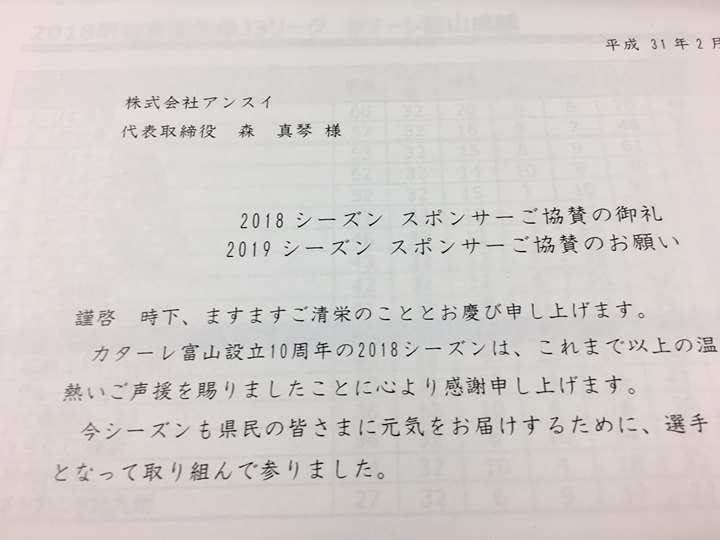 平成 31年2月
株式会社アンスイ
代表取締役 森 真琴 様
2018 シーズン スポンサーご協賛の御礼
2019 シーズン スポンサーご協賛のお願い
謹啓 時下、ますますご清栄のこととお慶び申し上げます。
カターレ富山設立10周年の2018シーズンは、これまで以上の温
熱いご声援を賜りましたことに心より感謝申し上げます。
今シーズンも県民の皆さまに元気をお届けするために、選手
となって取り組んで参りました。